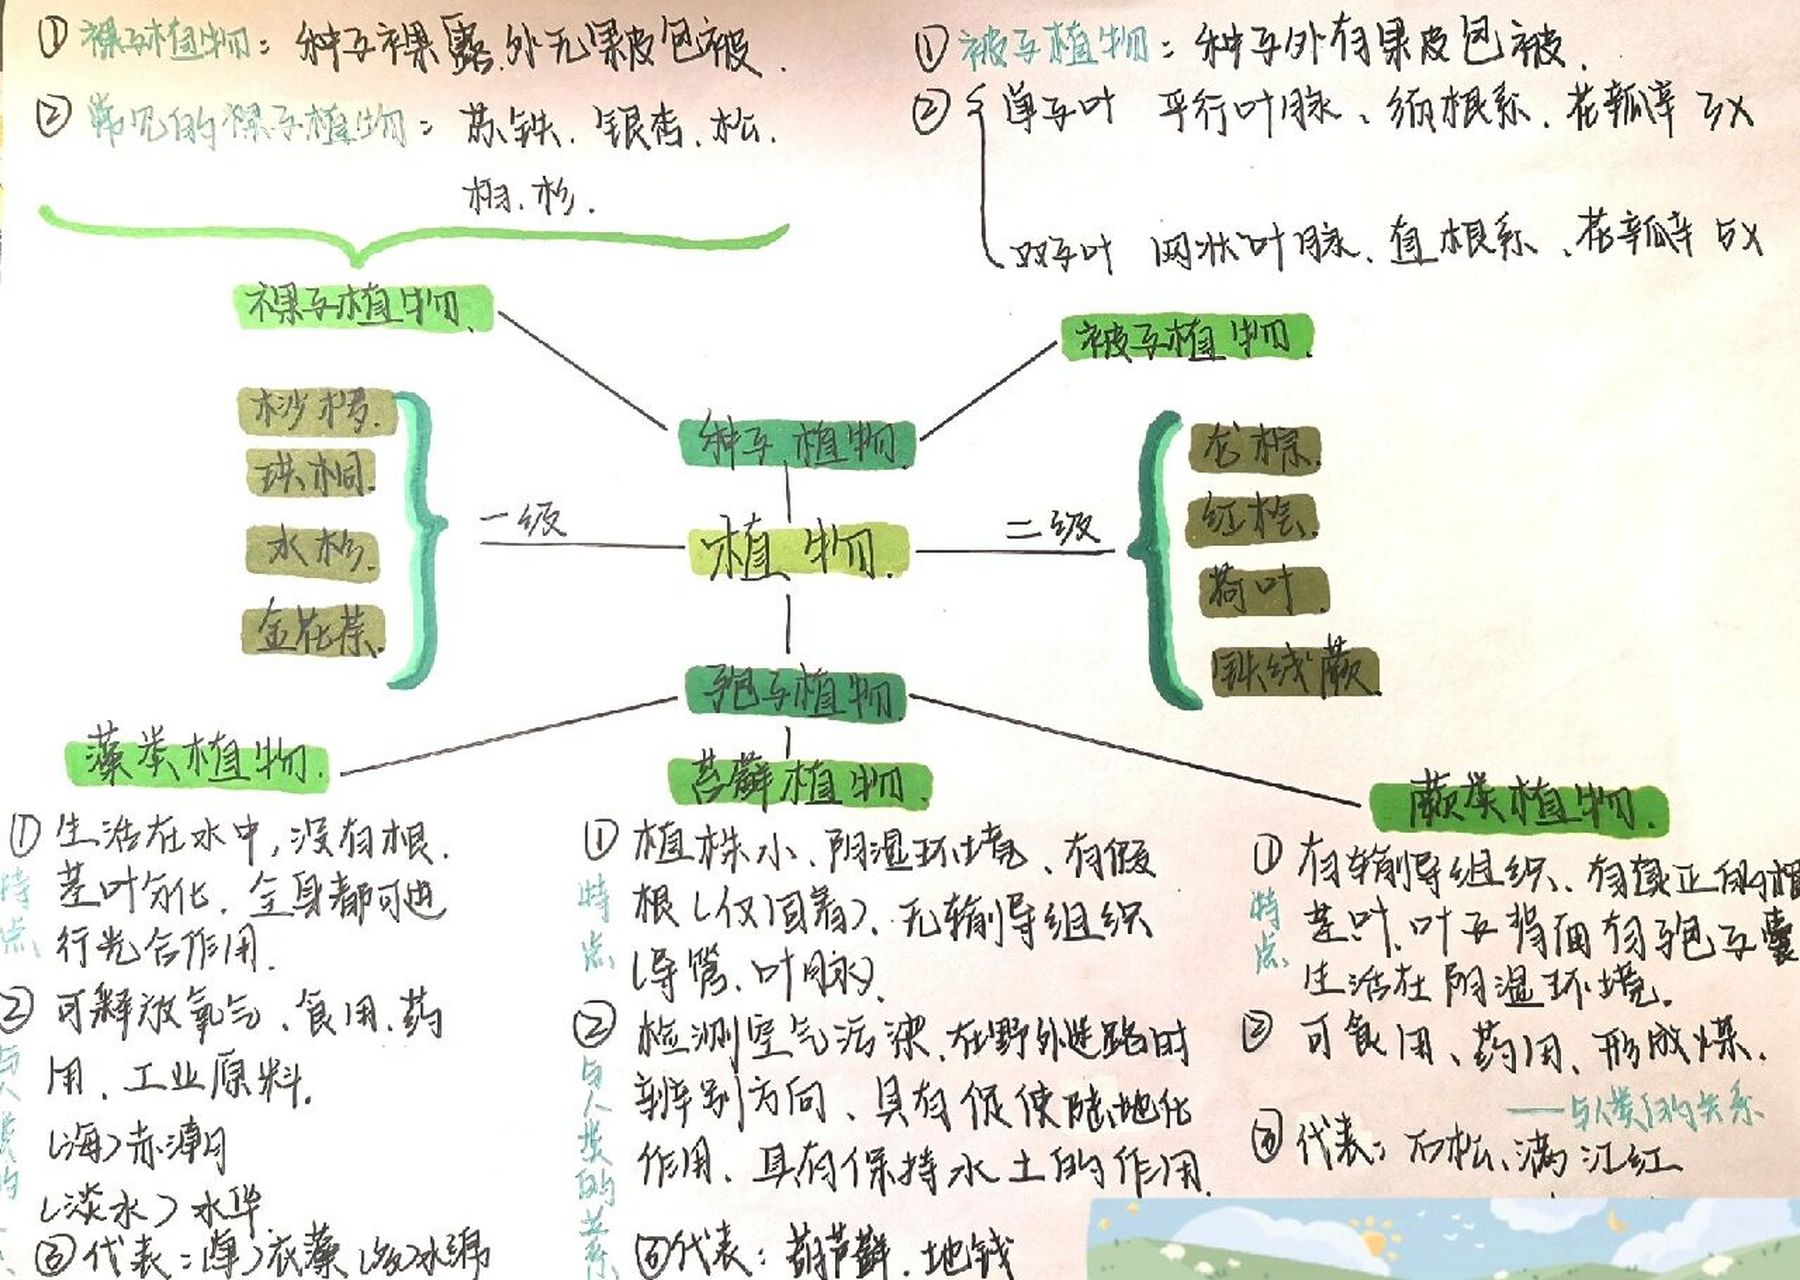 ① 裸子植物：种子裸露.外无果皮包被.
② 常见的裸子植物：苏铁.银杏.松.
柏.杉.
① 被子植物：种子外有果皮包被.
② { 单子叶 平行叶脉、须根系.花瓣率3X
双子叶 网状叶脉、直根系、花瓣率5X
裸子植物.
被子植物.
种子植物.
桫椤.
珙桐.
水杉.
金花茶.
一级
植物.
二级
红桧.
荷叶.
铁线蕨.
孢子植物.
藻类植物.
苔藓植物.
蕨类植物.
① 生活在水中,没有根.
茎叶分化.全身都可进
行光合作用.
特点
② 可释放氧气、食用.药
用、工业原料.
(海)赤潮
(淡水)水华
与人类的
③代表：(单)衣藻(多)水绵
① 植株小、阴湿环境、有假
根(仅固着)、无输导组织
(导管、叶脉).
特点
② 检测空气污染.在野外迷路时
辨别方向、具有促使陆地化
作用、具有保持水土的作用.
与人类的关系
③代表：葫芦藓.地钱
① 有输导组织、有真正的根
茎叶.叶子背面有孢子囊
生活在阴湿环境.
特点
② 可食用、药用、形成煤.
——与人类的关系
③ 代表：石松、满江红